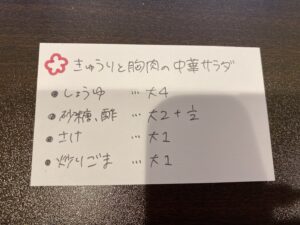 きゅうりと胸肉の中華サラダ
・しょうゆ … 大4
・砂糖、酢 … 大2+½
・さけ … 大1
・炒りごま … 大1